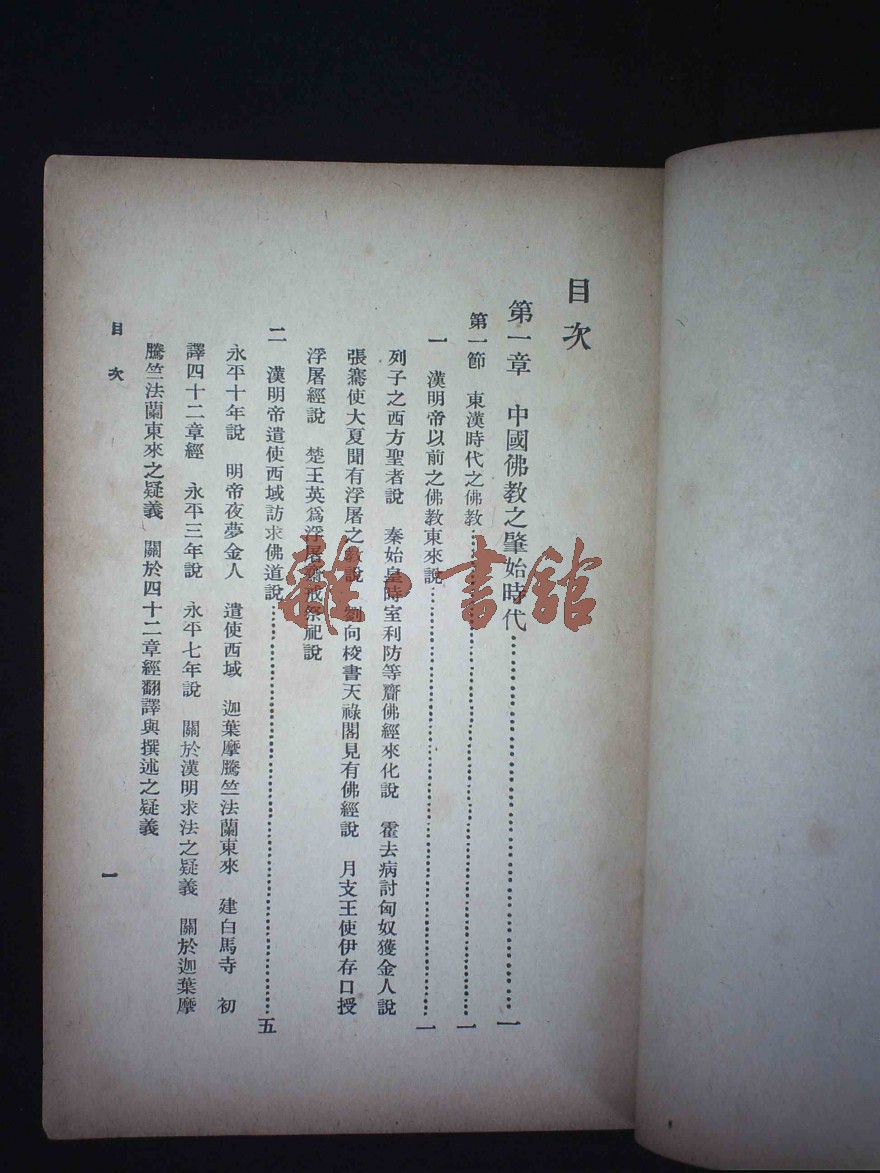 目次
第一章　中國佛教之肇始時代…………………一
第一節　東漢時代之佛教…………………一
一　漢明帝以前之佛教東來說…………………一
列子之西方聖者說　秦始皇時室利防等齎佛經來化說　霍去病討匈奴獲金人說
張騫使大夏聞有浮屠之教說　劉向梭書天祿閣見有佛經說　月支王使伊存口授
浮屠經說　楚王英爲浮屠齋戒祭祀說
二　漢明帝遣使西域訪求佛道說…………………五
永平十年說　明帝夜夢金人　遣使西域　迦葉摩騰竺法蘭東來　建白馬寺　初
譯四十二章經　永平三年說　永平七年說　關於漢明求法之疑義　關於迦葉摩
騰竺法蘭東來之疑義　關於四十二章經翻譯與撰述之疑義
目次
一
雜·書館